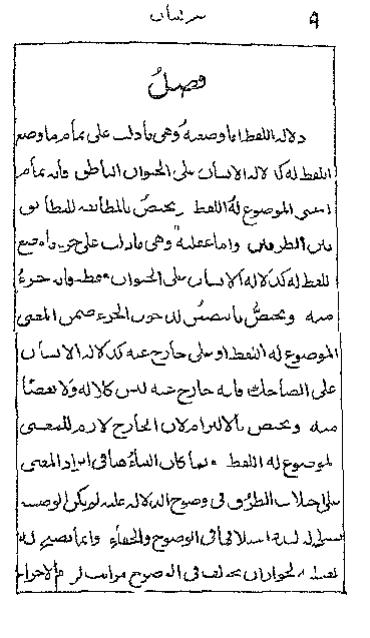 فصلُ
دلالة اللفظ اما وضعية وهي ما دلت على تمام ما وضع
اللفظ له كدلالة الانسان على الحيوان الناطق فانه تمام
المعنى الموضوع لهُ اللفظ ويختصُّ بالمطابقة لتطابق
بين الطرفين واما عقلية وهي ما دلت على جزء ما وضع
اللفظ له كدلالة الانسان على الحيوان فقط فانه جزءُ
منه ويختصُّ بالتضمن لدخول الجزء ضمن المعنى
الموضوع له اللفظ او على خارج عنه كدلالة الانسان
على الضاحك فانه خارج عنه ليس كلا له ولا بعضًا
منه ويختص بالالتزام لان الخارج لازم للمعنى
الموضوع له اللفظ ولما كان البناءُ هنا في ايراد المعنى
على اختلاف الطرق في وضوح الدلالة عليه لم يكن الوضعية
في الوضوح والخفاءِ وانما
في الوضوح مراتب لزوم الاجزاء